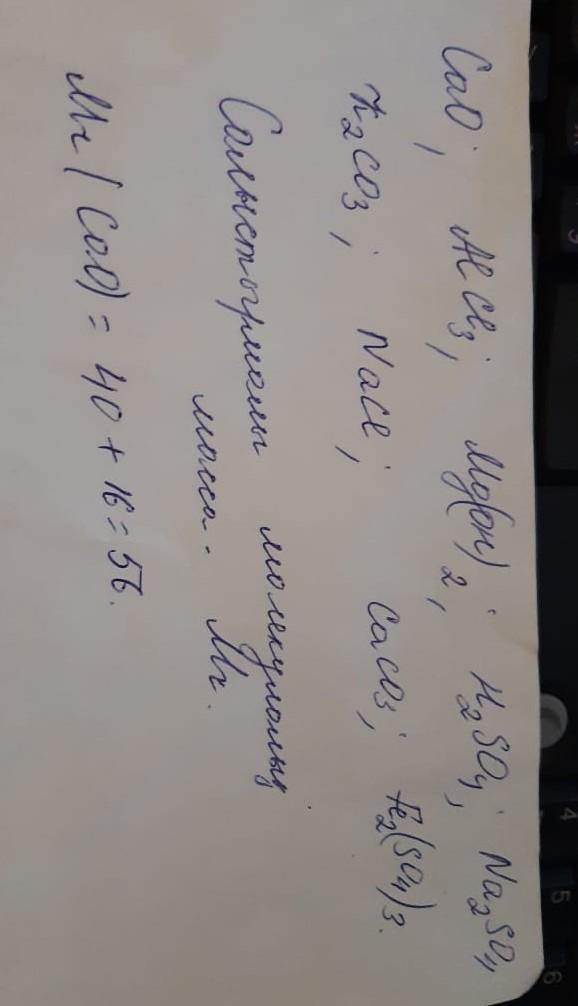 CaO; AlCl3; Mg(OH)2; H2SO4; Na2SO4
K2CO3; NaCl; CaCO3; Fe2(SO4)3.
Салыстырмалы молекулалық
масса - Mr.
Mr (CaO) = 40 + 16 = 56.